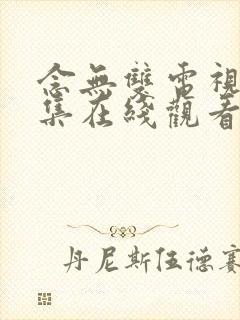 念無雙電視
集在綫觀看
丹尼斯伍德賽